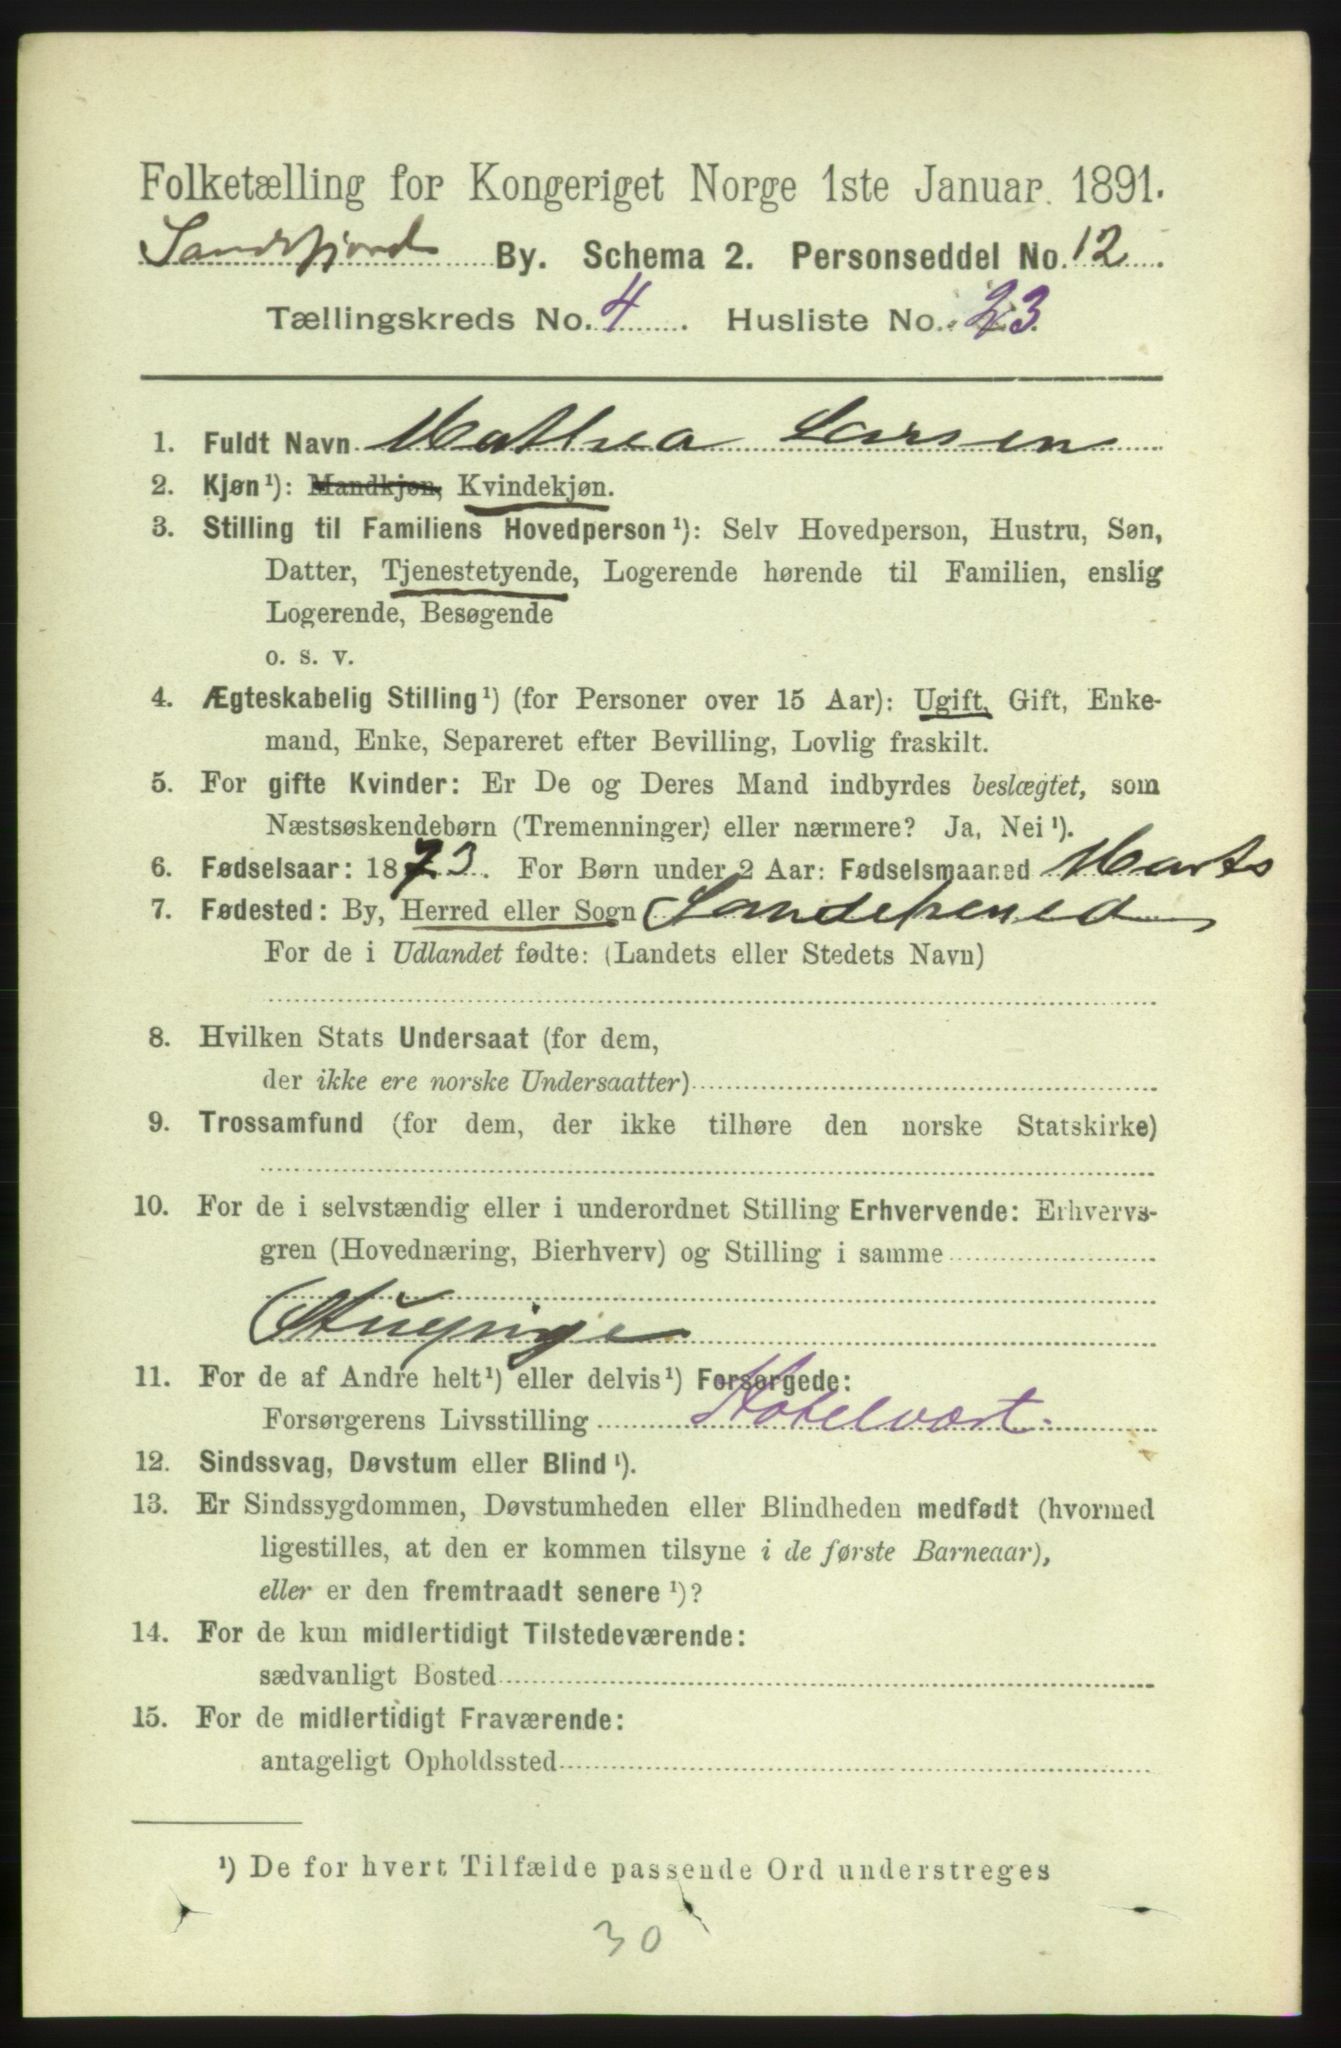 Folketælling for Kongeriget Norge 1ste Januar 1891.
Sandefjord By. Schema 2. Personseddel No. 12.
Tællingskreds No. 4. Husliste No. 23.
1. Fuldt Navn Mathea Larsen
2. Kjøn¹): Mandkjøn, Kvindekjøn.
3. Stilling til Familiens Hovedperson¹): Selv Hovedperson, Hustru, Søn,
Datter, Tjenestetyende, Logerende hørende til Familien, enslig
Logerende, Besøgende
o. s. v.
4. Ægteskabelig Stilling¹) (for Personer over 15 Aar): Ugift, Gift, Enke-
mand, Enke, Separeret efter Bevilling, Lovlig fraskilt.
5. For gifte Kvinder: Er De og Deres Mand indbyrdes beslægtet, som
Næstsøskendebørn (Tremenninger) eller nærmere? Ja, Nei¹).
6. Fødselsaar: 1873. For Børn under 2 Aar: Fødselsmaaned Marts
7. Fødested: By, Herred eller Sogn Sandeherred
For de i Udlandet fødte: (Landets eller Stedets Navn)
8. Hvilken Stats Undersaat (for dem,
der ikke ere norske Undersaatter)
9. Trossamfund (for dem, der ikke tilhøre den norske Statskirke)
10. For de i selvstændig eller i underordnet Stilling Erhvervende: Erhvervs-
gren (Hovednæring, Bierhverv) og Stilling i samme
Stuepige
11. For de af Andre helt¹) eller delvis¹) Forsørgede:
Forsørgerens Livsstilling Hotelvært.
12. Sindssvag, Døvstum eller Blind¹).
13. Er Sindssygdommen, Døvstumheden eller Blindheden medfødt (hvormed
ligestilles, at den er kommen tilsyne i de første Barneaar),
eller er den fremtraadt senere¹)?
14. For de kun midlertidigt Tilstedeværende:
sædvanligt Bosted
15. For de midlertidigt Fraværende:
antageligt Opholdssted
¹) De for hvert Tilfælde passende Ord understreges
30